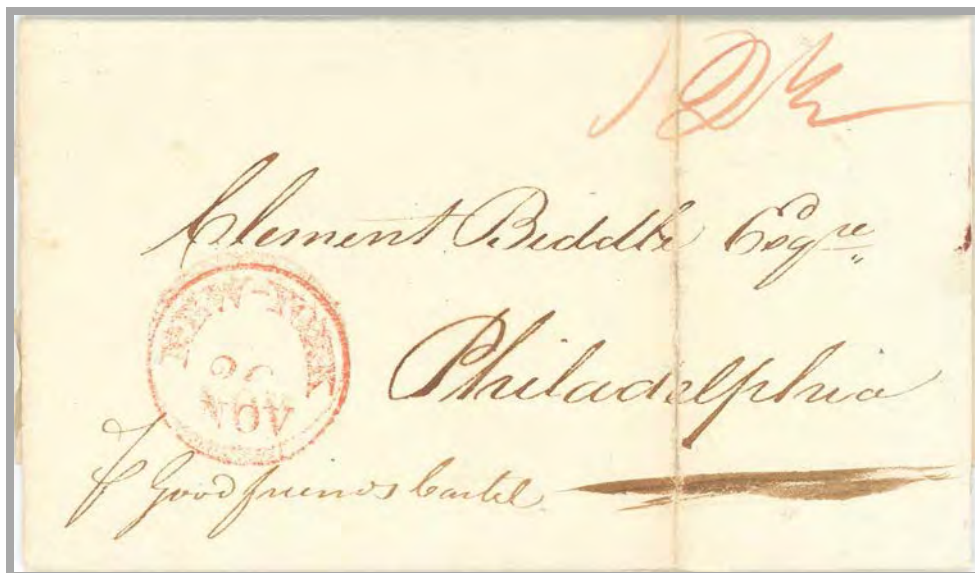 12½
Clement Biddle Esqre
NEW-YORK
NOV
Philadelphia
⅌ Good friends Cartel